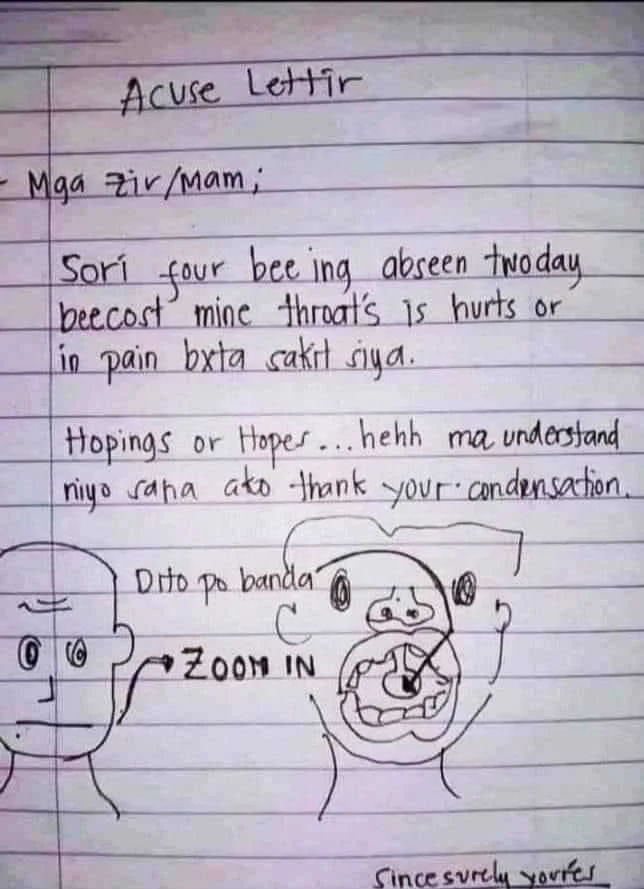 Acuse Lettir
- Mga zir/mam;
Sori four bee ing abseen twoday
beecost mine throat's is hurts or
in pain bxta sakit siya.
Hopings or Hopes... hehh ma understand
niyo sana ako thank your condensation.
Dito po banda
ZOOM IN
Sincesurely youres